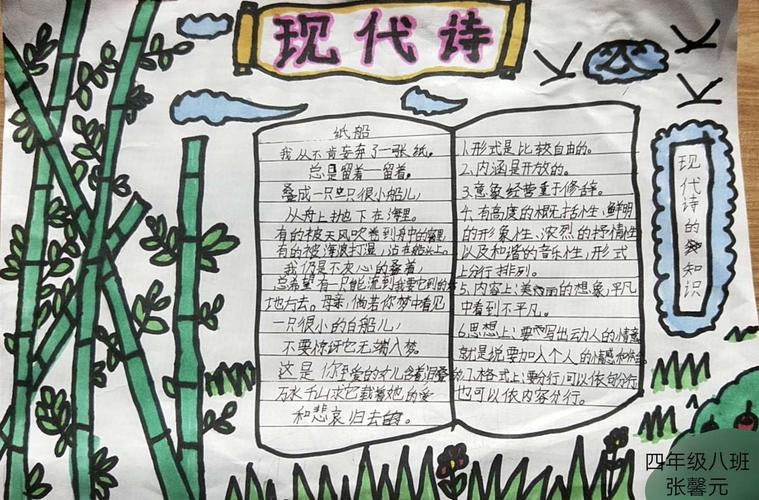 现代诗
纸船
我从不肯妄弃了一张纸。
总是留着—留着。
叠成一只只很小船儿，
从舟上抛下在海里。
有的被天风吹卷到舟中的窗里
有的被海浪打湿，沾在船头上。
我仍是不灰心的叠着，
总希望有一只能流到我要它到的
地方去。母亲，倘若你梦中看见
一只很小的白船儿，
不要惊讶它无端入梦。
这是你至爱的女儿含着泪叠的
万水千山求它载着她的爱
和悲哀归去。
1.形式是比较自由的。
2、内涵是开放的。
3、意象经营重于修辞。
4、有高度的概括性、鲜明
的形象性、浓烈的抒情性
以及和谐的音乐性，形式
上分行排列。
5、内容上：美的想象，平凡
中看到不平凡。
6、思想上：要写出动人的情意
就是说要加入个人的情感和
7、格式上：要分行，可以依句分行
也可以依内容分行。
现代诗的知识
四年级八班
张馨元